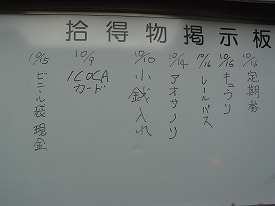 拾得物掲示板
10/16 定期券
10/16 キュウリ
10/16 レールパス
10/14 アオサノリ
10/10 小銭入れ
10/9 ICOCAカード
10/15 ビニール袋現金